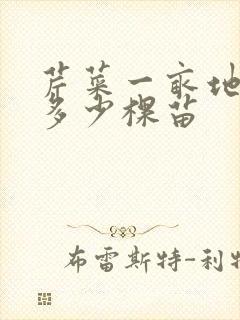 芹菜一亩地
多少棵苗
布雷斯特-利特